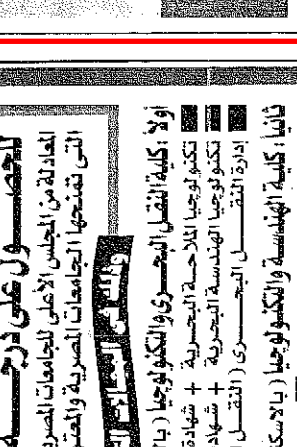 للحصول على درجــــة
المعادلة من المجلس الأعلى للجامعات المصر
التى تمنحها الجامعات المصرية والمعتـ
أولا : كلية النقل البحــرى والتكنولوجيا ( با
تكنولوجيا الملاحــة البحريــة + شهادة
تكنولوجيا الهندسة البحرية + شهاد
إدارة النقــــل البحــــرى ( النقــــل
ثانيا : كلية الهندسة والتكنولوجيا ( بالاسك